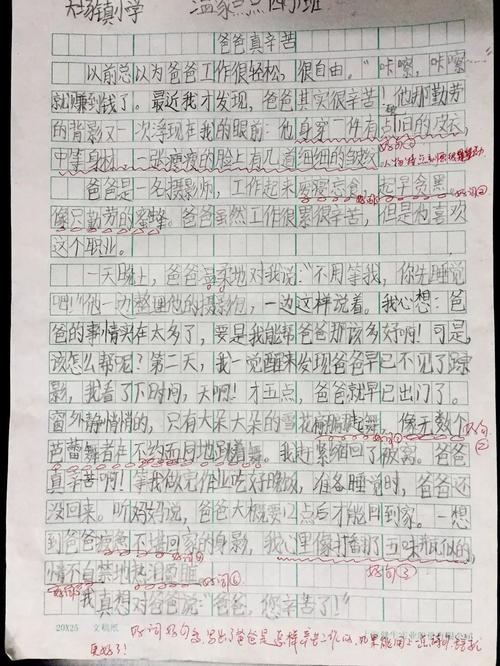 大场镇小学 四 班
爸爸真辛苦
以前总以为爸爸工作很轻松，很自由。“咔嚓，咔嚓
就赚到钱了。最近我才发现，爸爸其实很辛苦！他那勤劳
的背影又一次浮现在我的眼前：他身穿一件有点旧的皮衣，
中等身材，一张瘦瘦的脸上有几道细细的皱纹
爸爸是一名摄影师，工作起来废寝忘食、起早贪黑
像只勤劳的蜜蜂。爸爸虽然工作很累很辛苦，但是他喜欢
这个职业。
一天晚上，爸爸温柔地对我说：“不用等我，你先睡觉
吧！”他一边整理他的摄影包，一边这样说着。我心想：爸
爸的事情实在太多了，要是我能帮爸爸那该多好啊！可是，
该怎么帮呢？第二天，我一觉醒来发现爸爸早已不见了踪
影，我看了下时间，天啊！才五点，爸爸就早已出门了。
窗外静悄悄的，只有大朵大朵的雪花翩翩起舞，像无数个
好句②
芭蕾舞者在不约而同地跳着舞。我赶紧缩回了被窝。爸爸
真辛苦啊！等我做完作业吃好晚饭，准备睡觉时，爸爸还
没回来。听妈妈说，爸爸大概要12点后才能回到家。一想
到爸爸疲惫不堪回家的身影，我心里像打翻了五味瓶似的，
好句③
情不自禁地热泪盈眶
我真想对爸爸说：“爸爸，您辛苦了！”
20X25 文稿纸
好词好句多，写出了爸爸是怎样辛苦工作的，如果能用上
更好了！